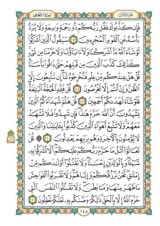 فَإِن كَذَّبُوكَ فَقُل رَّبُّكُمْ ذُو رَحْمَةٍ وَٰسِعَةٍ وَلَا يُرَدُّ
بَأْسُهُۥ عَنِ ٱلْقَوْمِ ٱلْمُجْرِمِينَ سَيَقُولُ ٱلَّذِينَ أَشْرَكُوا۟
لَوْ شَآءَ ٱللَّهُ مَآ أَشْرَكْنَا وَلَآ ءَابَآؤُنَا وَلَا حَرَّمْنَا مِن شَىْءٍ
كَذَٰلِكَ كَذَّبَ ٱلَّذِينَ مِن قَبْلِهِمْ حَتَّىٰ ذَاقُوا۟ بَأْسَنَا
قُلْ هَلْ عِندَكُم مِّنْ عِلْمٍ فَتُخْرِجُوهُ لَنَآ إِن تَتَّبِعُونَ إِلَّا
ٱلظَّنَّ وَإِنْ أَنتُمْ إِلَّا تَخْرُصُونَ قُلْ فَلِلَّهِ ٱلْحُجَّةُ ٱلْبَٰلِغَةُ
فَلَوْ شَآءَ لَهَدَىٰكُمْ أَجْمَعِينَ قُلْ هَلُمَّ شُهَدَآءَكُمُ ٱلَّذِينَ
يَشْهَدُونَ أَنَّ ٱللَّهَ حَرَّمَ هَٰذَا فَإِن شَهِدُوا۟ فَلَا تَشْهَدْ
مَعَهُمْ وَلَا تَتَّبِعْ أَهْوَآءَ ٱلَّذِينَ كَذَّبُوا۟ بِـَٔايَٰتِنَا وَٱلَّذِينَ
لَا يُؤْمِنُونَ بِٱلْـَٔاخِرَةِ وَهُم بِرَبِّهِمْ يَعْدِلُونَ
قُلْ تَعَالَوْا۟ أَتْلُ مَا حَرَّمَ رَبُّكُمْ عَلَيْكُمْ أَلَّا تُشْرِكُوا۟ بِهِۦ
شَيْـًٔا وَبِٱلْوَٰلِدَيْنِ إِحْسَٰنًا وَلَا تَقْتُلُوٓا۟ أَوْلَٰدَكُم مِّنْ
إِمْلَٰقٍ نَّحْنُ نَرْزُقُكُمْ وَإِيَّاهُمْ وَلَا تَقْرَبُوا۟ ٱلْفَوَٰحِشَ
مَا ظَهَرَ مِنْهَا وَمَا بَطَنَ وَلَا تَقْتُلُوا۟ ٱلنَّفْسَ ٱلَّتِى
حَرَّمَ ٱللَّهُ إِلَّا بِٱلْحَقِّ ذَٰلِكُمْ وَصَّىٰكُم بِهِۦ لَعَلَّكُمْ تَعْقِلُونَ
١٤٨